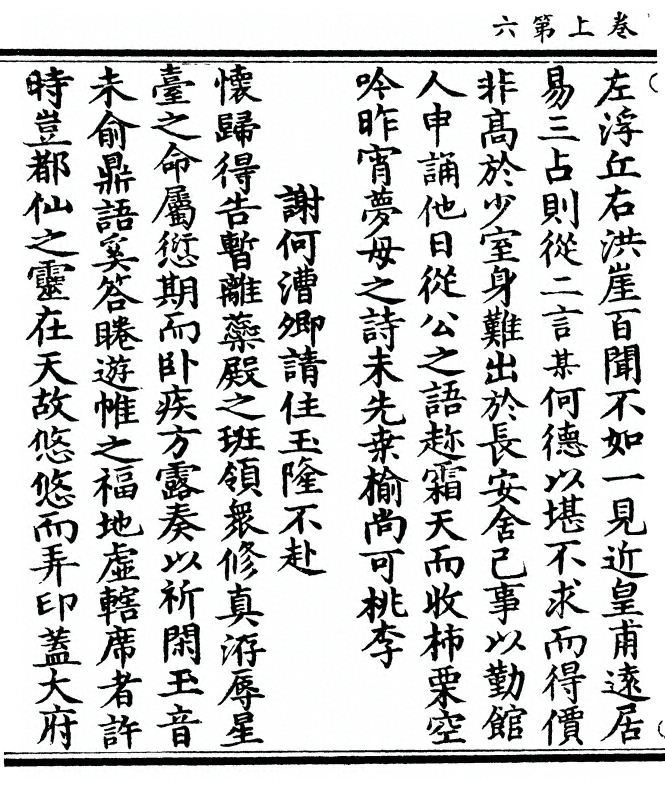 卷上第六
左浮丘右洪崖百聞不如一見近皇甫遠居
易三占則從二言某何德以堪不求而得價
非高於少室身難出於長安舍己事以勤館
人申誦他日從公之語趂霜天而收柿栗空
吟昨宵夢母之詩未先桒榆尚可桃李
謝何漕卿請住玉隆不赴
懷歸得告暫離蘂殿之班領衆修真洊辱星
臺之命屬愆期而卧疾方露奏以祈閑玉音
未俞鼎語奚答睠遊帷之福地虛轄席者許
時豈都仙之靈在天故悠悠而弄印蓋大府